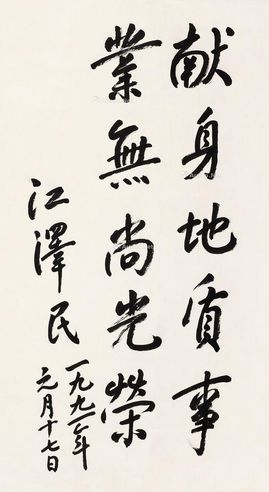 献身地质事
業無尚光荣
江澤民
一九九二年
元月十七日